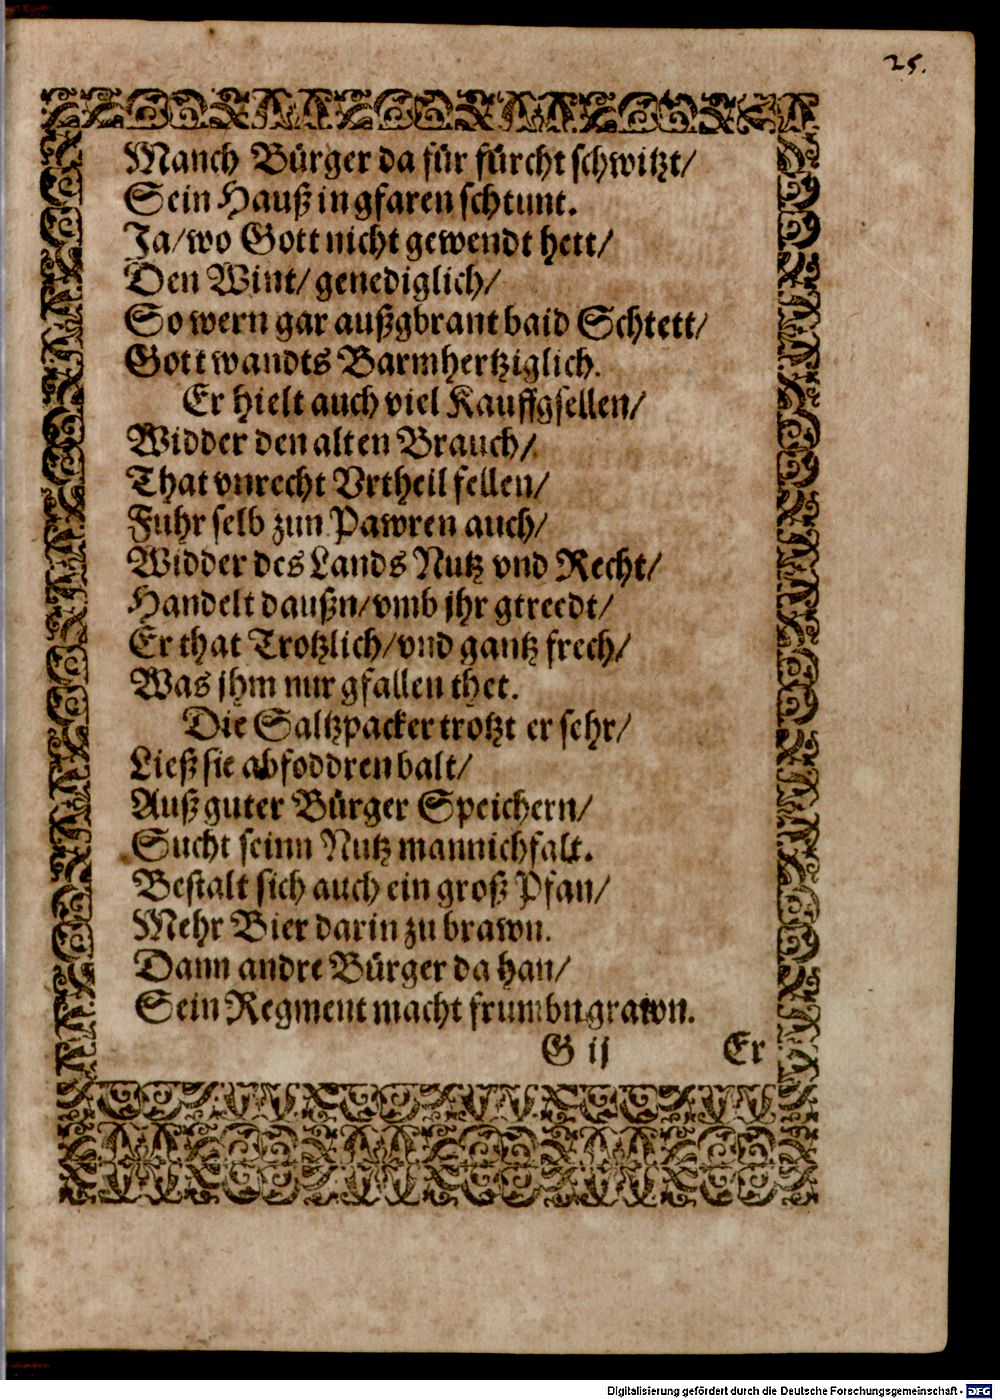 25.
Manch Bürger da für fürcht schwitzt/
Sein Hauß in gfaren schtunt.
Ja/wo Gott nicht gewendt hett/
Den Wint/ genediglich/
So wern gar außgbrant baid Schtett/
Gott wandts Barmhertziglich.
Er hielt auch viel Kauffgsellen/
Widder den alten Brauch/
That vnrecht Vrtheil fellen/
Fuhr selb zun Pawren auch/
Widder des Lands Nutz vnd Recht/
Handelt daußn/vmb jhr gtreedt/
Er that Trotzlich/vnd gantz frech/
Was jhm nur gfallen thet.
Die Saltzpacker trotzt er sehr/
Ließ sie abfoddren balt/
Auß guter Bürger Speichern/
Sucht seinn Nutz mannichfalt.
Bestalt sich auch ein groß Pfan/
Mehr Bier darin zu brawn.
Dann andre Bürger da han/
Sein Regment macht frumbn grawn.
G ij Er
Digitalisierung gefördert durch die Deutsche Forschungsgemeinschaft - DFG